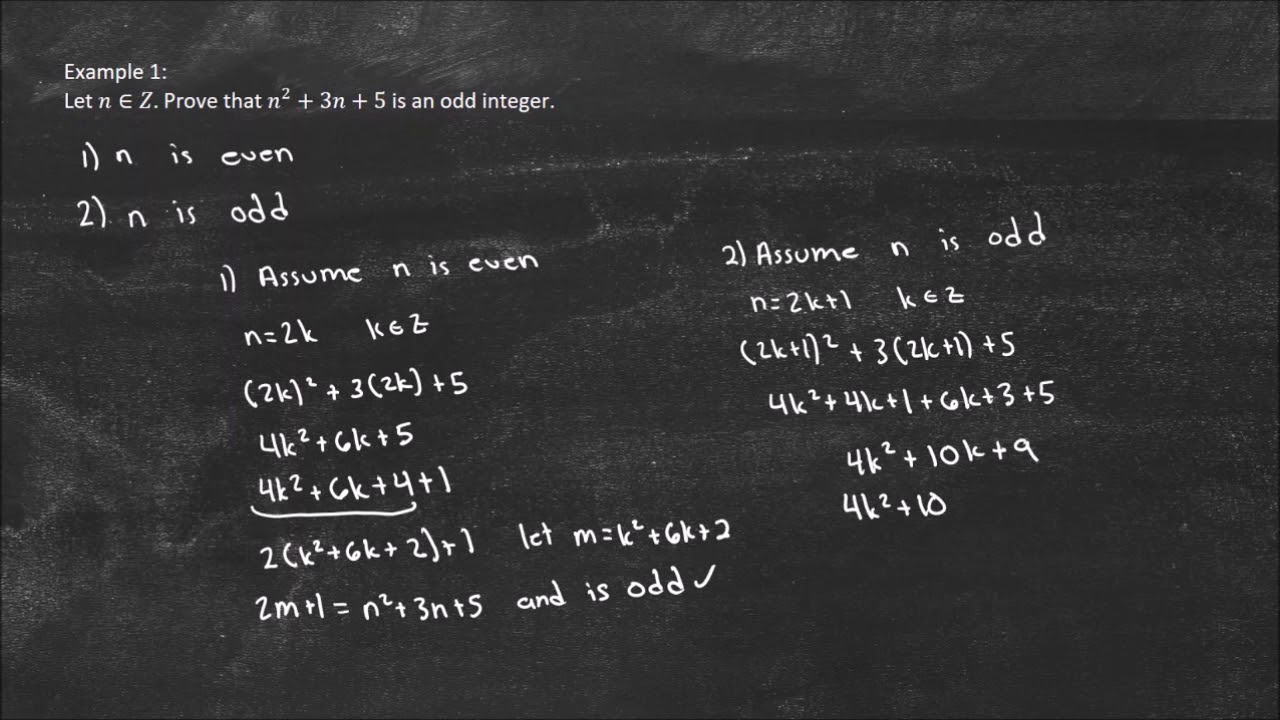 Example 1:
Let n ∈ Z. Prove that n² + 3n + 5 is an odd integer.
1) n is even
2) n is odd
1) Assume n is even
n=2k k∈Z
(2k)² + 3(2k) + 5
4k² + 6k + 5
4k² + 6k + 4 + 1
2(k² + 6k + 2) + 1 let m = k² + 6k + 2
2m+1 = n² + 3n + 5 and is odd ✓
2) Assume n is odd
n=2k+1 k∈Z
(2k+1)² + 3(2k+1) + 5
4k² + 4k + 1 + 6k + 3 + 5
4k² + 10k + 9
4k² + 10